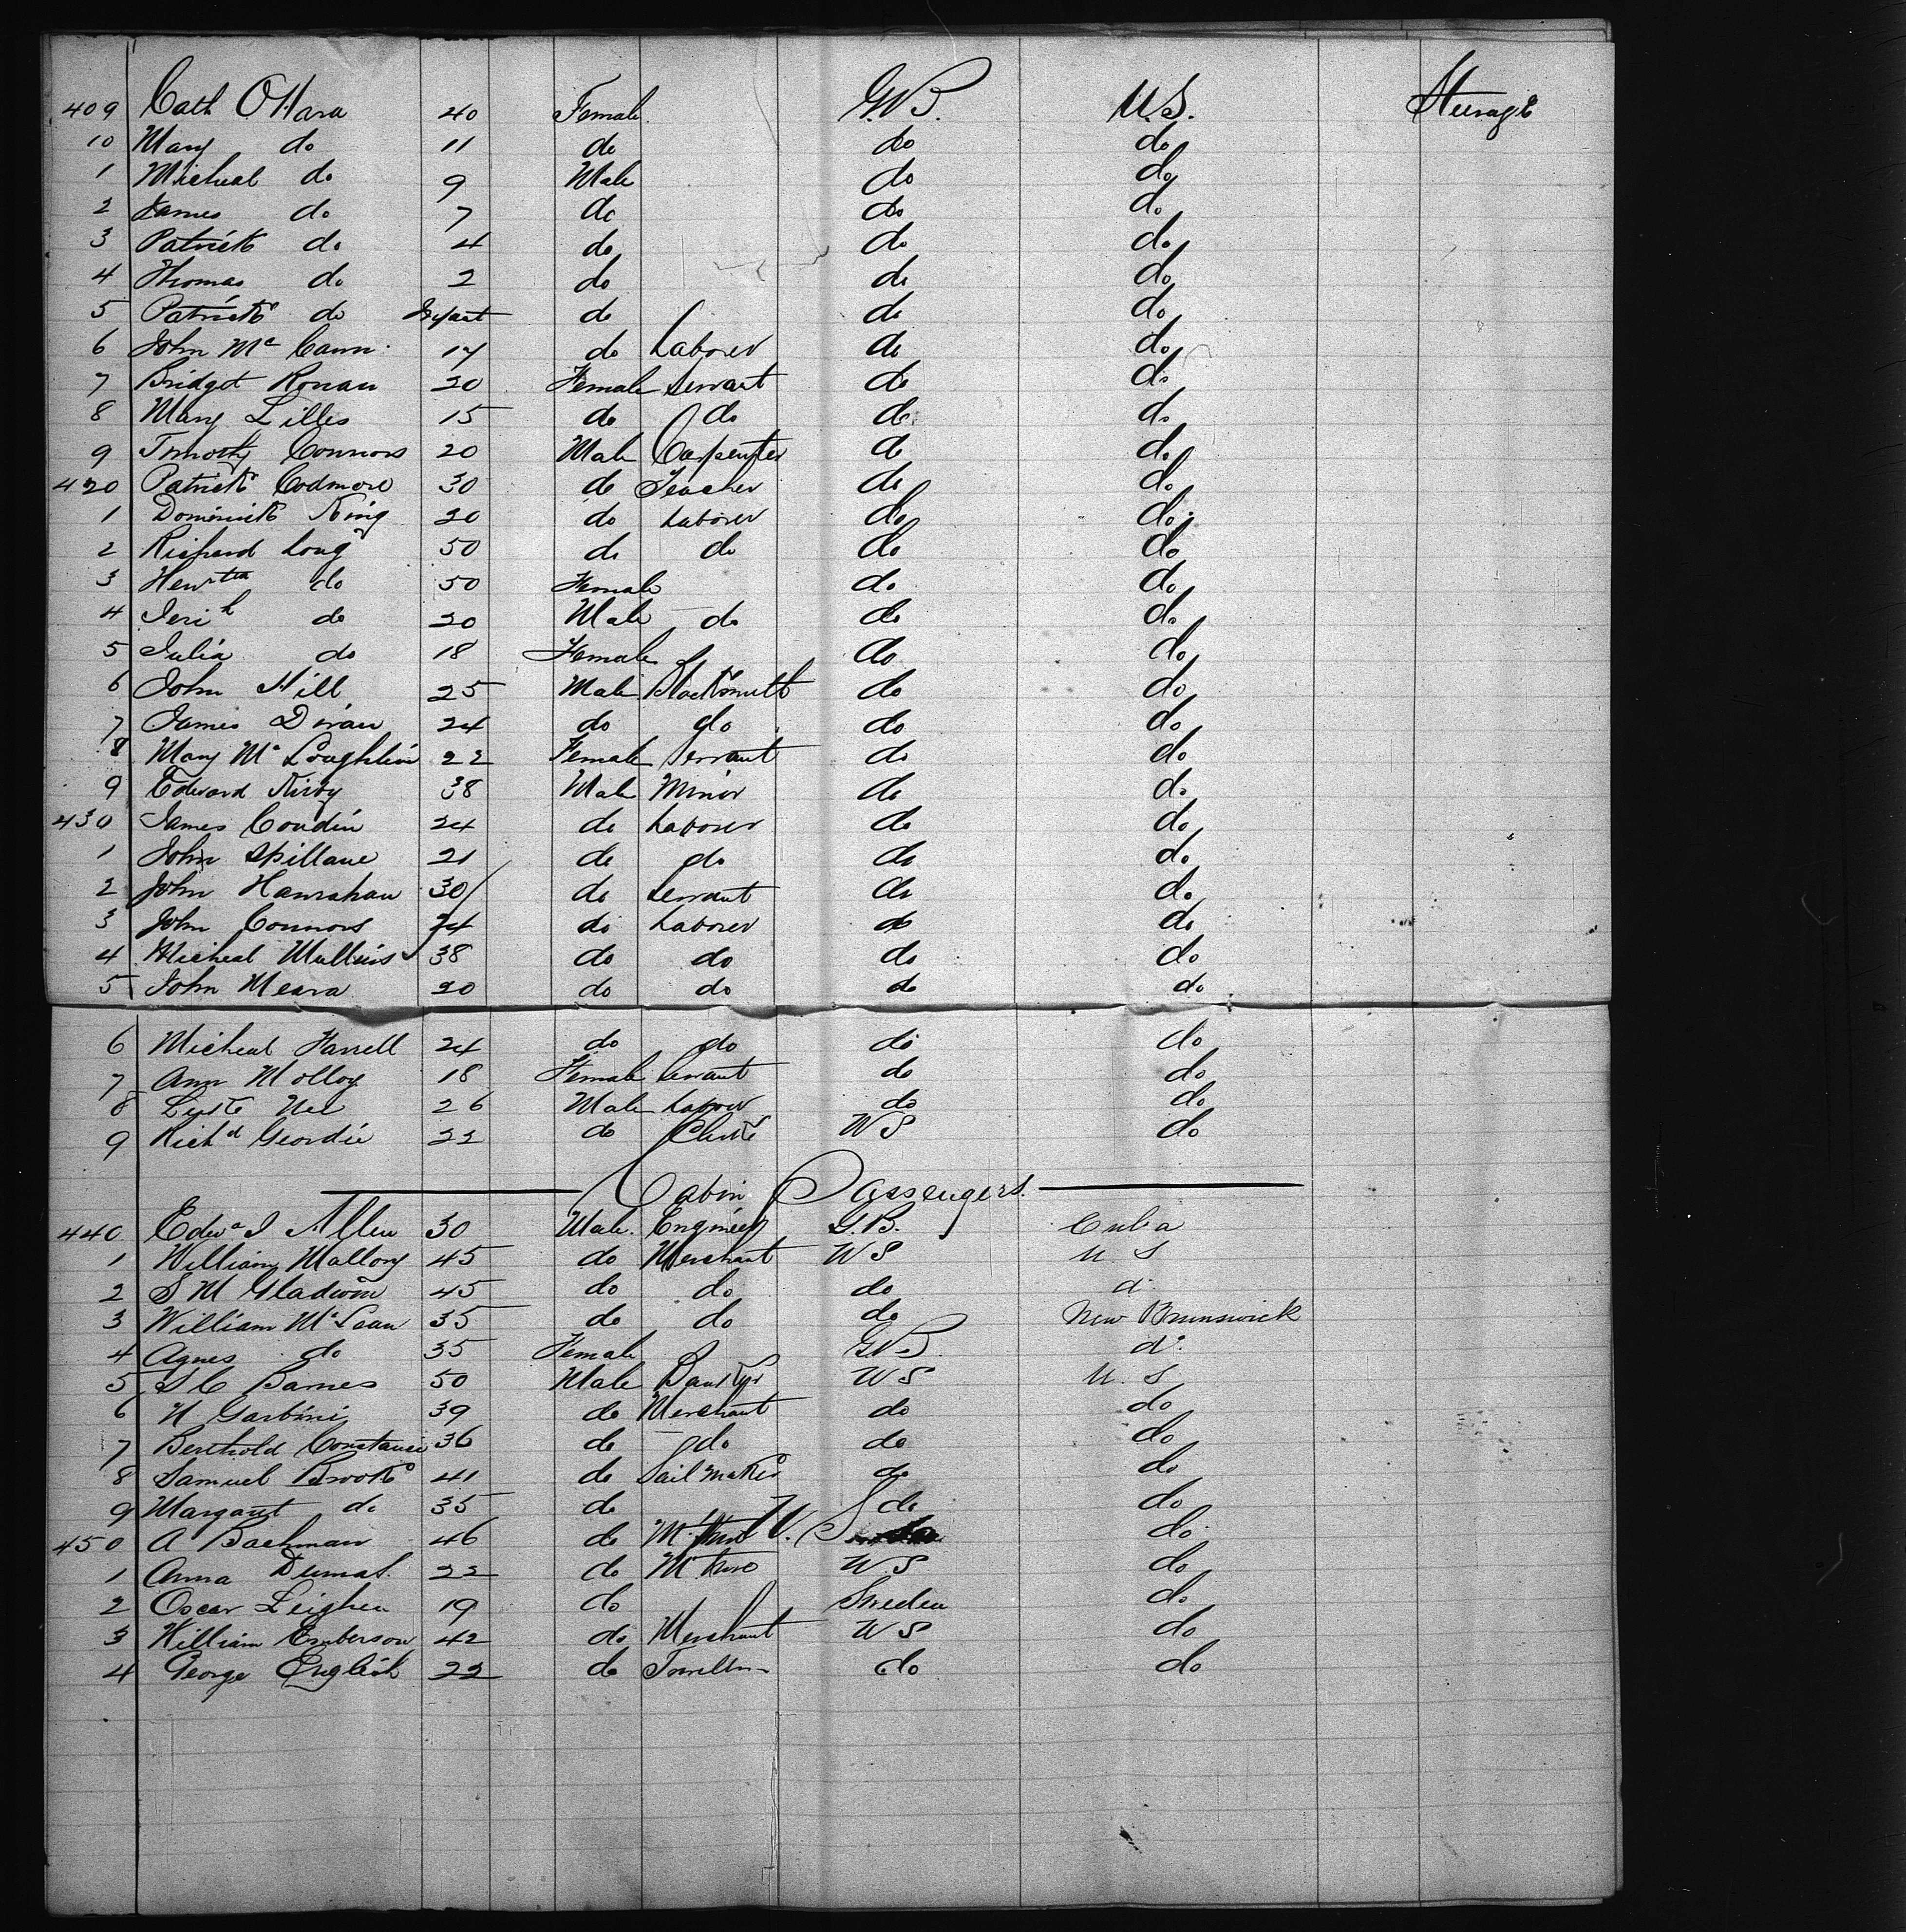 409 Cath OHara 40 Female G.B. U.S. Steerage
10 Mary do 11 do do do
1 Micheal do 9 Male do do
2 James do 7 do do do
3 Patrick do 4 do do do
4 Thomas do 2 do do do
5 Patrick do Infant do do do
6 John Mc Cann 17 do Laborer do do
7 Bridget Ronan 20 Female Servant do do
8 Mary Lilles 15 do do do do
9 Timothy Connors 20 Male Carpenter do do
420 Patrick Codmore 30 do Teacher do do
1 Dominick King 20 do Laborer do do
2 Richard Long 50 do do do do
3 Henrtta do 50 Female do do
4 Jerih do 20 Male do do do
5 Julia do 18 Female do do
6 John Hill 25 Male Blacksmith do do
7 James Divan 24 do do do do
8 Mary Mc Loughlin 22 Female Servant do do
9 Edward Kirby 38 Male Minor do do
430 James Condin 24 do Laborer do do
1 John Spillane 21 do do do do
2 John Hanrahan 30 do Servant do do
3 John Connors 24 do Laborer do do
4 Micheal Mullins 38 do do do do
5 John Meara 20 do do do do
6 Micheal Farrell 24 do do do do
7 Ann Molloy 18 Female Servant do do
8 26 Male Laborer do do
9 Richd Geordie 22 do Clerk US do
Cabin Passengers.
440 Edwd J Allen 30 Male. Engineer G.B. Cuba
1 William Mallory 45 do Merchant US U.S
2 S M Gladwin 45 do do do do
3 William McLean 35 do do do New Brunswick
4 Agnes do 35 Female G.B. do
5 S C Barnes 50 Male Banker US U.S
6 N Garbini 39 do Merchant do do
7 Berthold Constance 36 do do do do
8 Samuel Brook 41 do Sail Maker do do
9 Margaret do 35 do do do
450 A Bachman 46 do U.S do
1 Anna Dumas. 22 do US do
2 Oscar Leighen 19 do Sweden do
3 William Emberson 42 do Merchant US do
4 George English 22 do do do